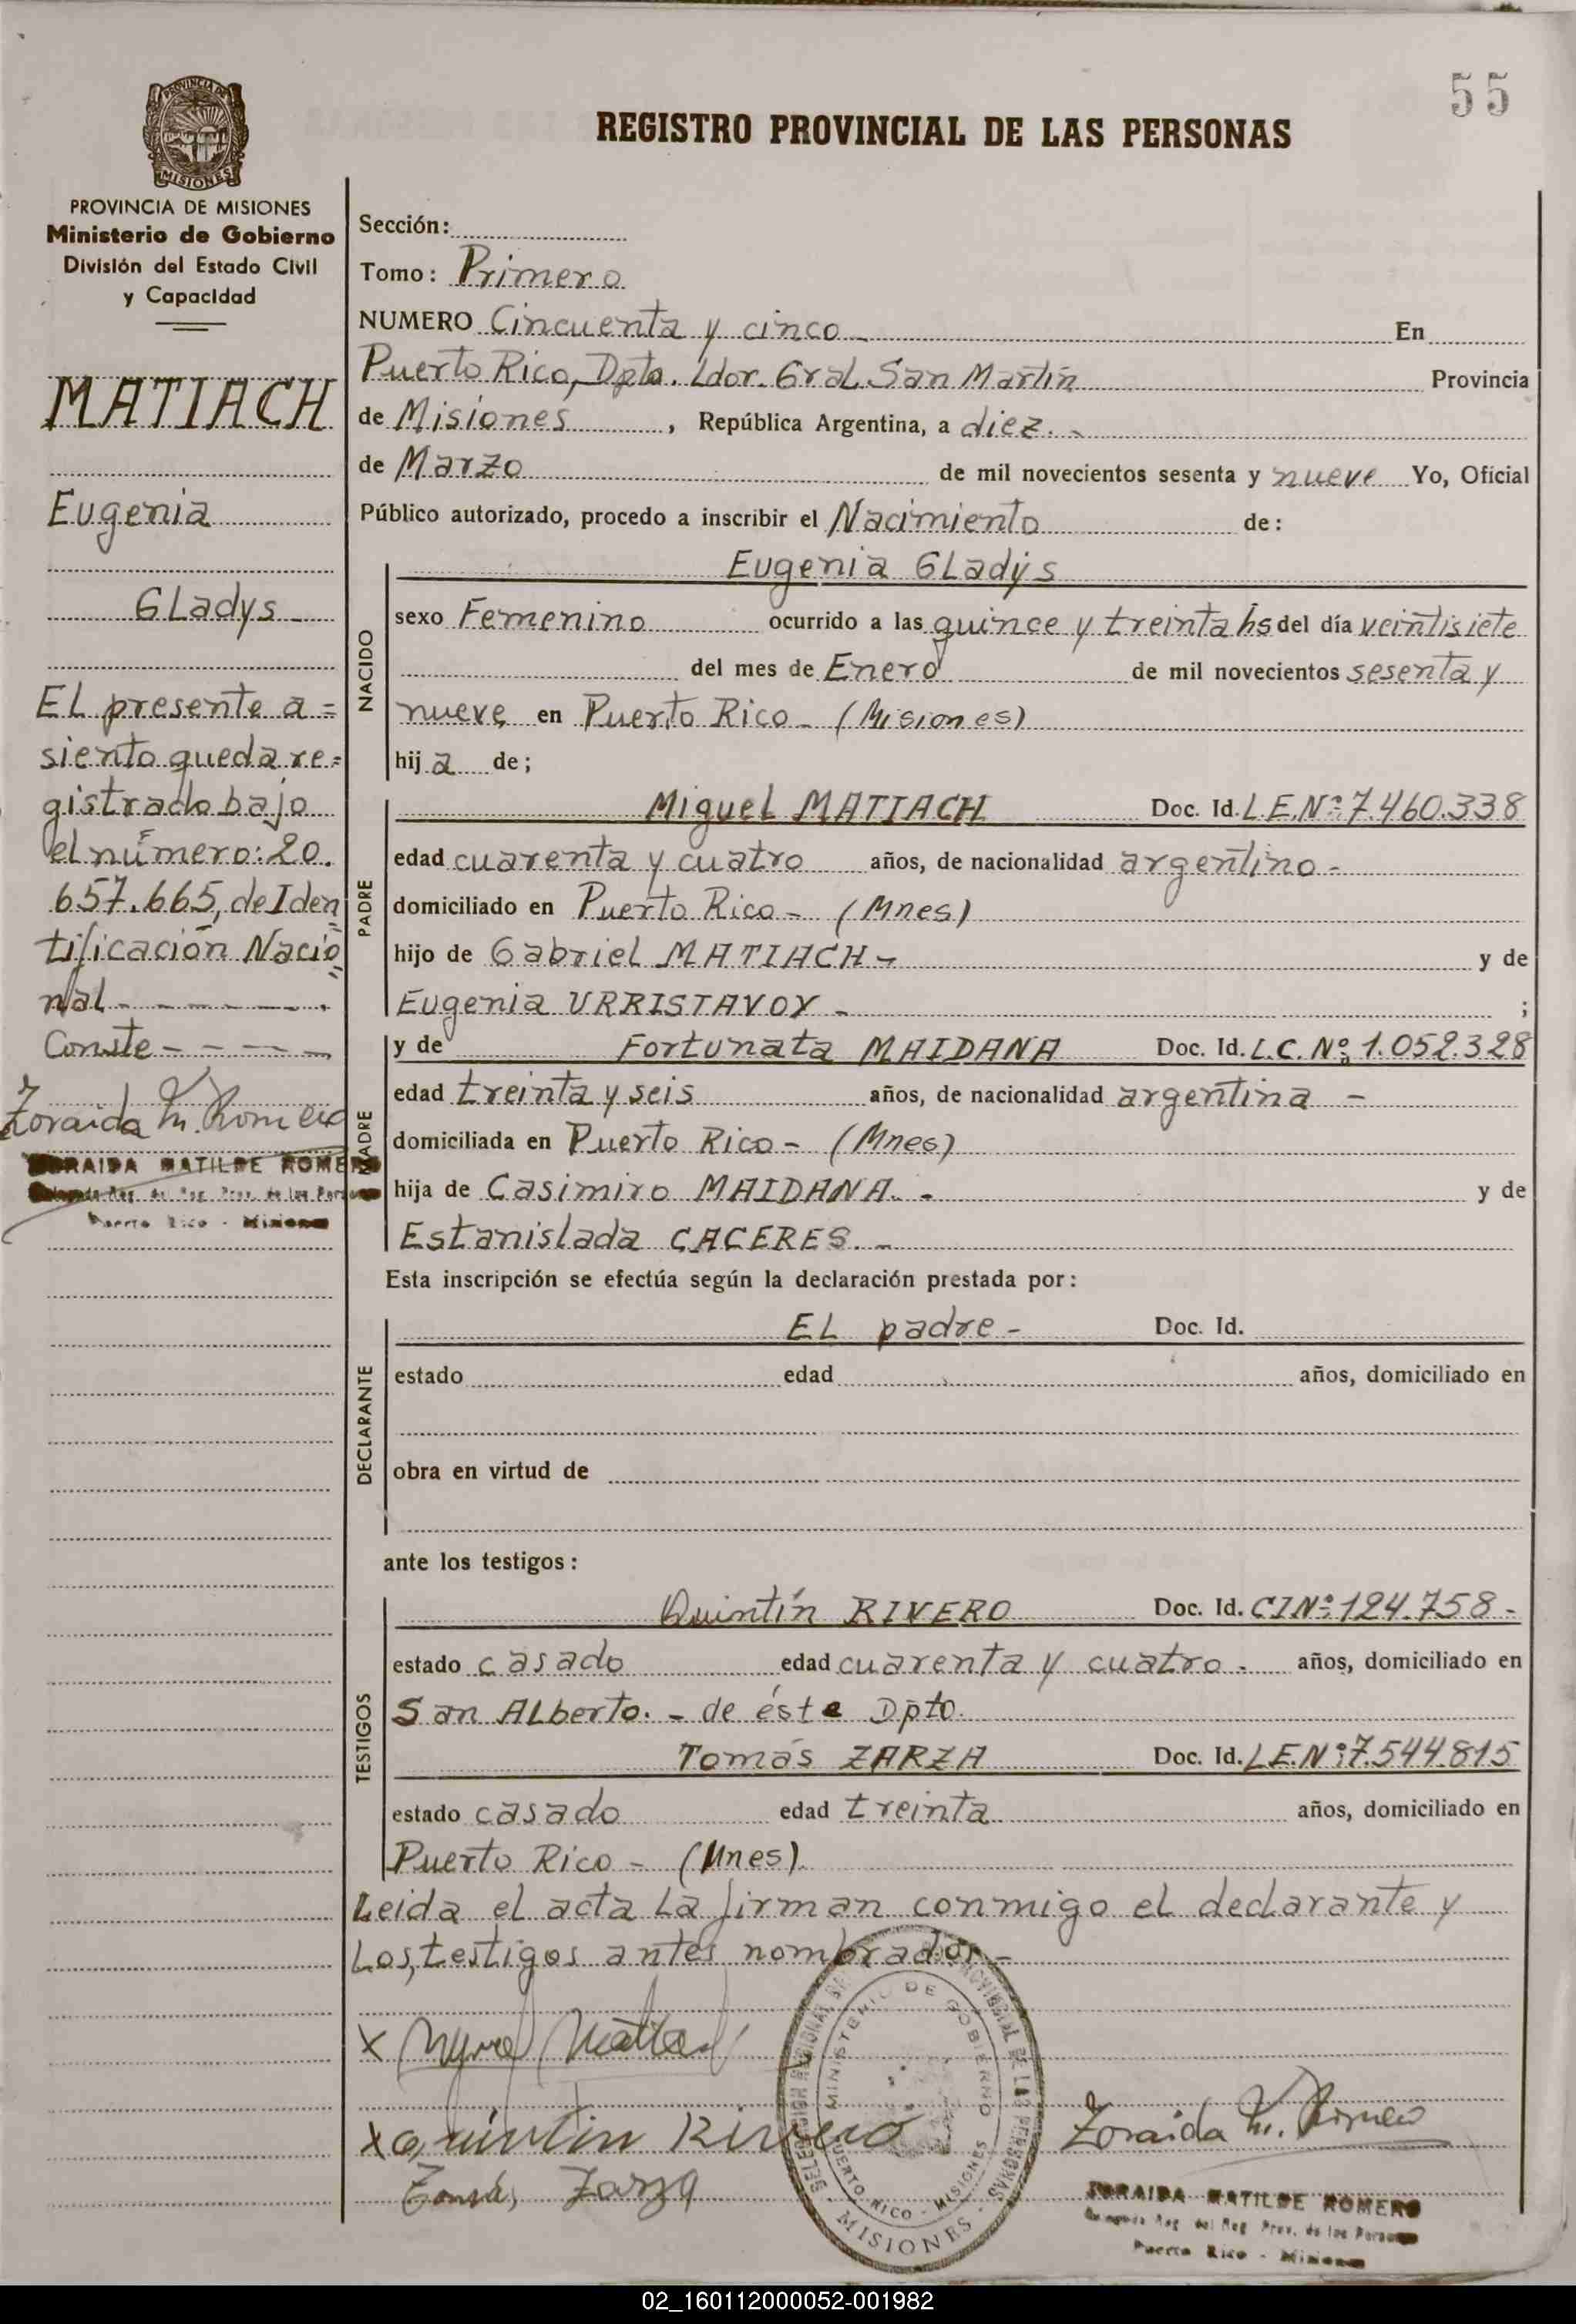 55
REGISTRO PROVINCIAL DE LAS PERSONAS
PROVINCIA DE
MISIONES
PROVINCIA DE MISIONES
Ministerio de Gobierno
División del Estado Civil
y Capacidad
MATIACH
Eugenia
GLadys
EL presente a=
siento queda re=
gistrado bajo
el número: 20.
657.665, de Iden
tificación Nacio
nal
Conste
Zoraida M. Romero
ZORAIDA MATILDE ROMERO
Delegada Reg. del Reg. Prov. de las Personas
Puerto Rico - Misiones
Sección:
Tomo: Primero
NUMERO Cincuenta y cinco En
Puerto Rico, Dpto. Ldor. Gral. San Martín Provincia
de Misiones, República Argentina, a diez.-
de Marzo de mil novecientos sesenta y nueve Yo, Oficial
Público autorizado, procedo a inscribir el Nacimiento de:
NACIDO
Eugenia GLadys
sexo Femenino ocurrido a las quince y treinta hs del día veintisiete
del mes de Enero de mil novecientos sesenta y
nueve en Puerto Rico - (Misiones)
hija de;
PADRE
Miguel MATIACH Doc. Id. L.E.Nº 7.460.338
edad cuarenta y cuatro años, de nacionalidad argentino -
domiciliado en Puerto Rico - (Mnes)
hijo de Gabriel MATIACH - y de
Eugenia URRISTAVOY - ;
MADRE
y de Fortunata MAIDANA Doc. Id. L.C. Nº 1.052.328
edad treinta y seis años, de nacionalidad argentina -
domiciliada en Puerto Rico - (Mnes)
hija de Casimiro MAIDANA. - y de
Estanislada CACERES. -
Esta inscripción se efectúa según la declaración prestada por:
DECLARANTE
EL padre - Doc. Id.
estado edad años, domiciliado en
obra en virtud de
ante los testigos:
TESTIGOS
Quintín RIVERO Doc. Id. CINº 124.758 -
estado casado edad cuarenta y cuatro - años, domiciliado en
San ALberto. - de éste Dpto.
Tomás ZARZA Doc. Id. L.E.Nº 7.544.815
estado casado edad treinta años, domiciliado en
Puerto Rico - (Mnes)
Leida el acta La firman conmigo el declarante y
Los, testigos antes nombrados -
x
x Quintin Rivero
Tomás, Zarza
MINISTERIO DE GOBIERNO
PUERTO RICO - MISIONES
PROVINCIAL DE LAS PERSONAS
MISIONES
Zoraida M. Romero
ZORAIDA MATILDE ROMERO
Delegada Reg. del Reg. Prov. de las Personas
Puerto Rico - Misiones
02_160112000052-001982